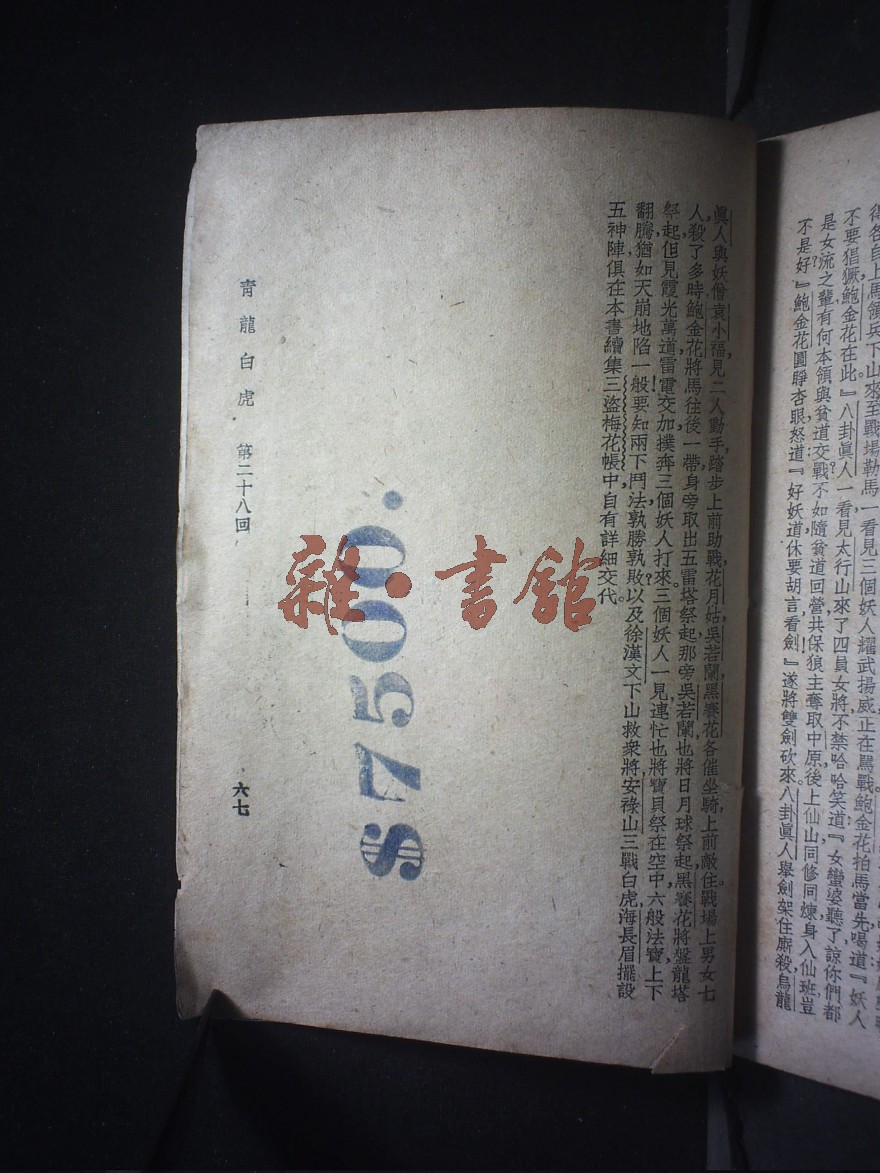 得各自上馬領兵下山來至戰場勒馬一看見三個妖人耀武揚威正在罵戰鮑金花拍馬當先喝道『妖人
不要猖獗鮑金花在此。』八卦眞人一看見太行山來了四員女將不禁哈哈笑道『女蠻婆聽了諒你們都
是女流之輩有何本領與貧道交戰不如隨貧道回營共保狼主奪取中原後上仙山同修同煉身入仙班豈
不是好?』鮑金花圓睜杏眼怒道:『好妖道休要胡言看劍!』遂將雙劍砍來八卦眞人舉劍架住廝殺烏龍
眞人與妖僧袁小福見二人動手踏步上前助戰花月姑吳若蘭黑賽花各催坐騎上前敵住戰場上男女七
人殺了多時鮑金花將馬往後一帶身旁取出五雷塔祭起那旁吳若蘭也將日月球祭起黑賽花將盤龍塔
祭起但見霞光萬道雷電交加撲奔三個妖人打來。三個妖人一見連忙也將寶貝祭在空中六般法寶上下
翻騰猶如天崩地陷一般!要知兩下鬥法孰勝孰敗?以及徐漢文下山救衆將安祿山三戰白虎海長眉擺設
五神陣俱在本書續集三盜梅花帳中自有詳細交代。
$7500.
青龍白虎 第二十八回
六七
雜·書館